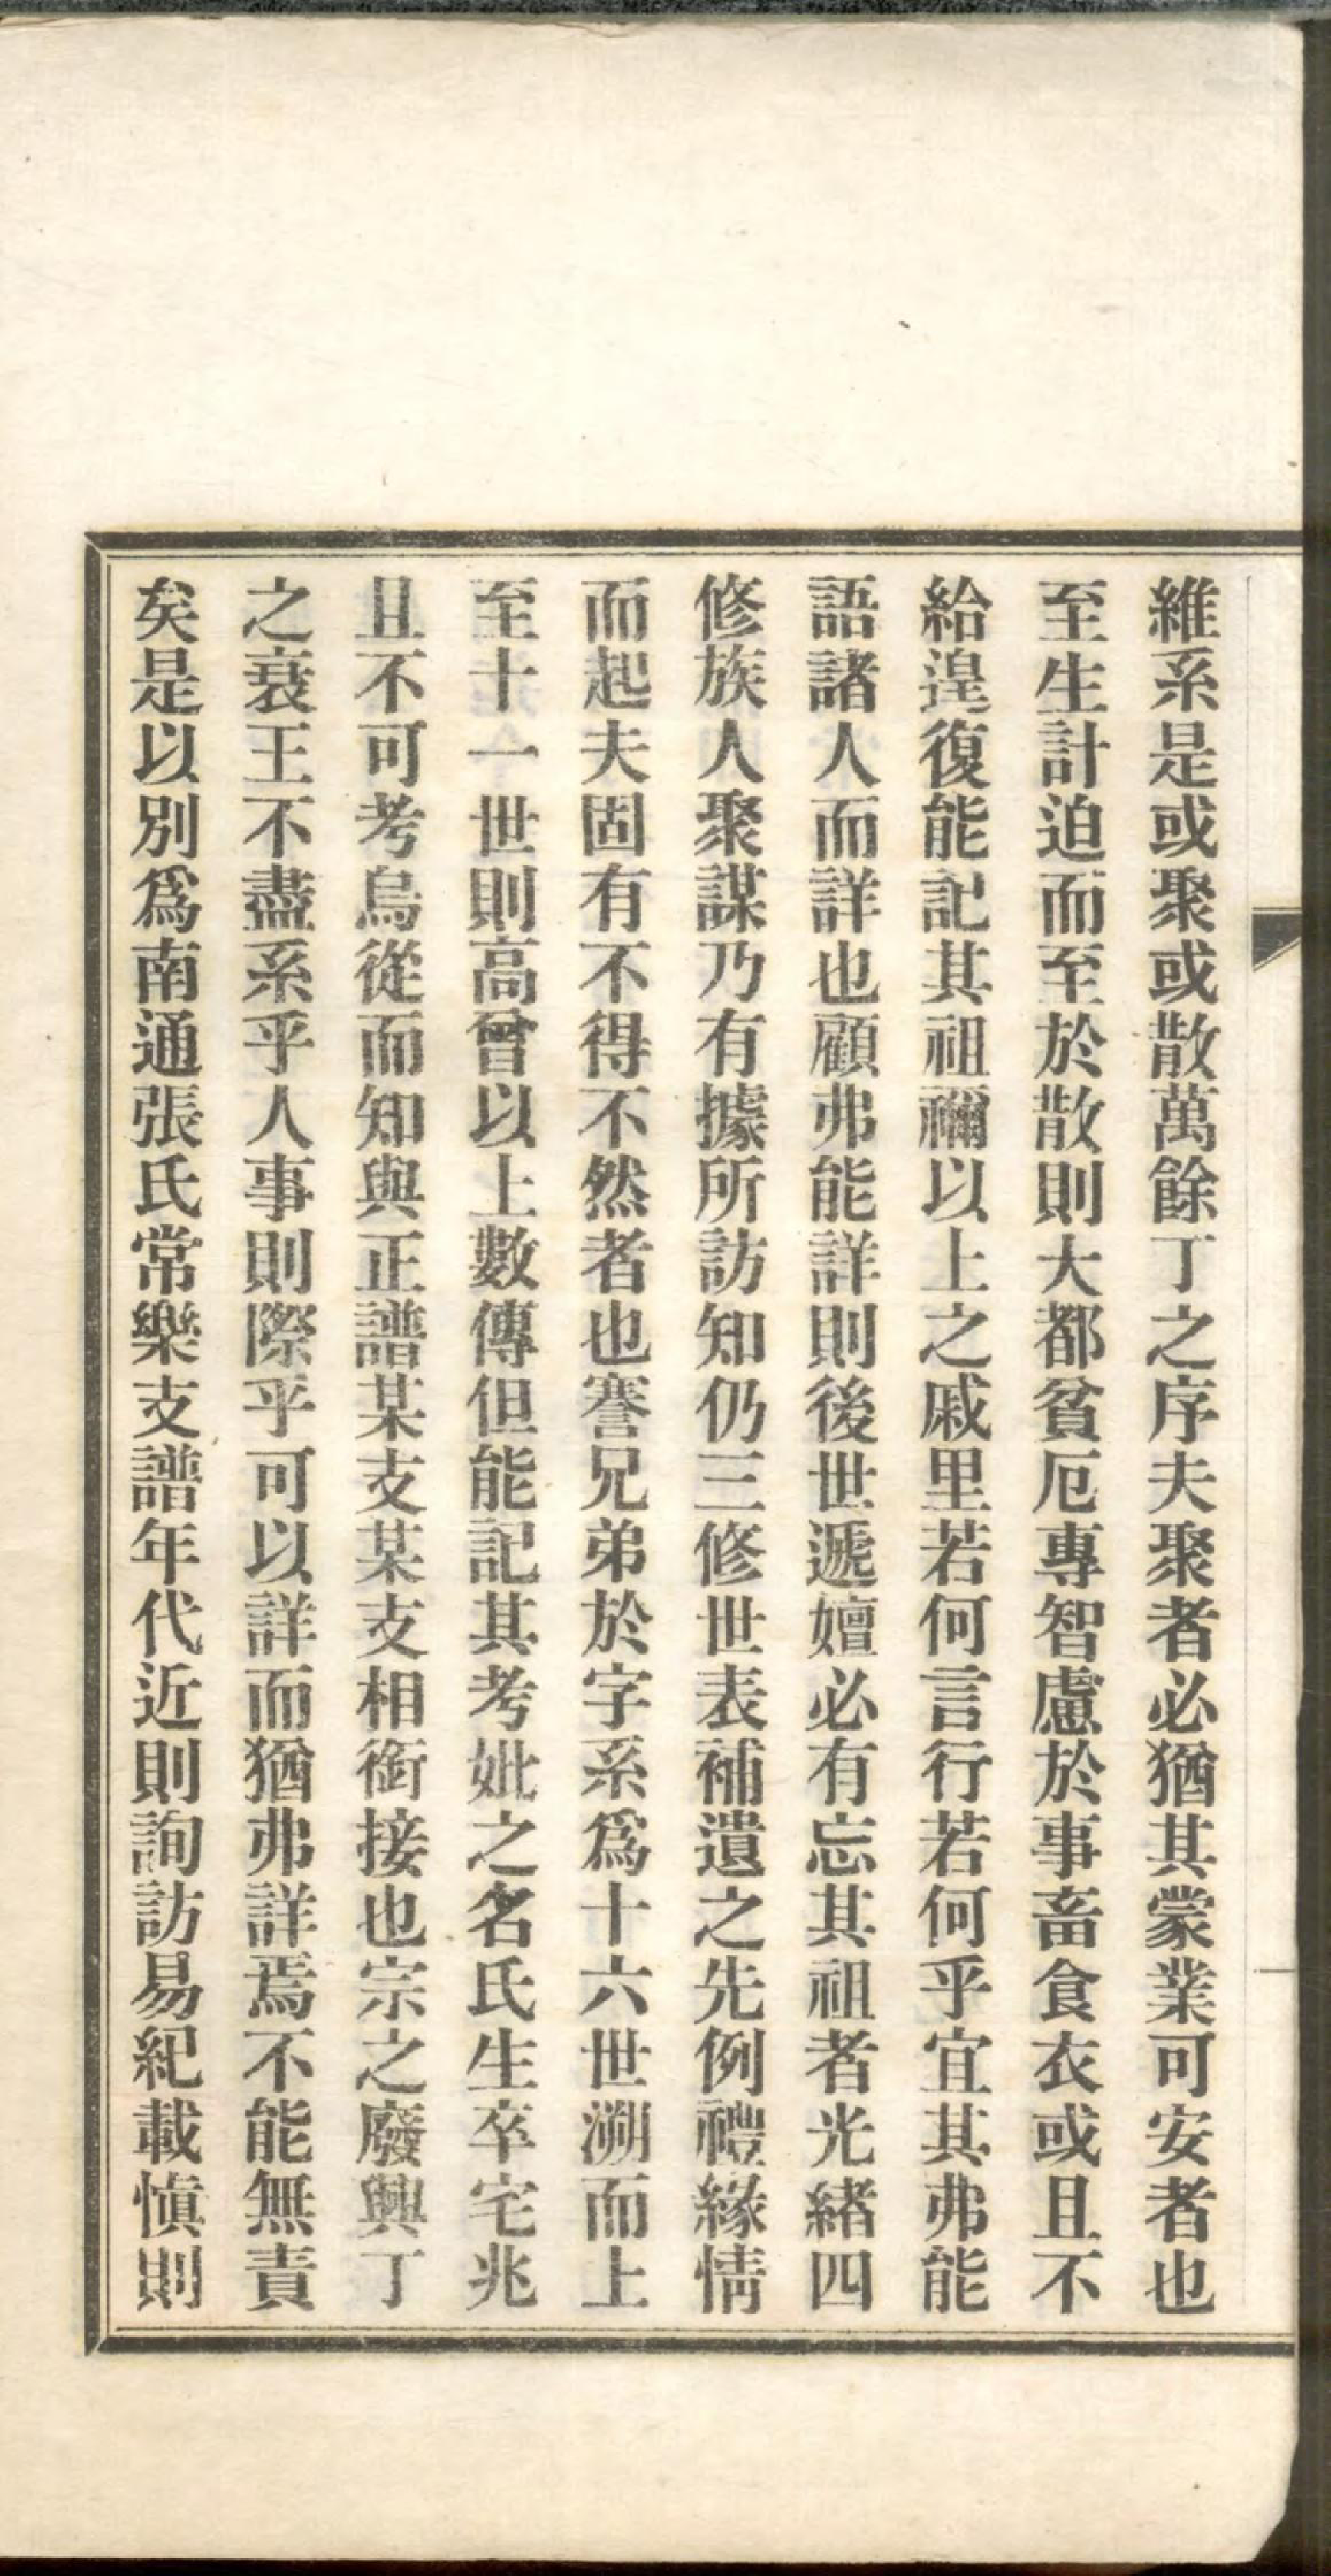 維系是或聚或散萬餘丁之序夫聚者必猶其蒙業可安者也
至生計迫而至於散則大都貧厄專智慮於事畜食衣或且不
給遑復能記其祖禰以上之戚里若何言行若何乎宜其弗能
語諸人而詳也顧弗能詳則後世遞嬗必有忘其祖者光緒四
修族人聚謀乃有據所訪知仍三修世表補遺之先例禮緣情
而起夫固有不得不然者也謇兄弟於字系爲十六世溯而上
至十一世則高曾以上數傳但能記其考妣之名氏生卒宅兆
且不可考烏從而知與正譜某支某支相銜接也宗之廢興丁
之衰王不盡系乎人事則際乎可以詳而猶弗詳焉不能無責
矣是以別爲南通張氏常樂支譜年代近則詢訪易紀載愼則